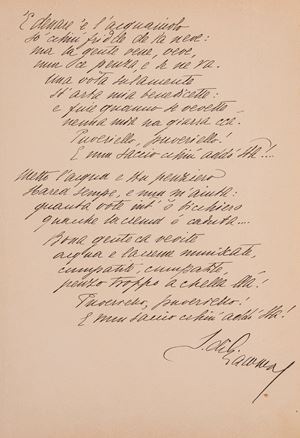 E denare 'e l'acquaiuolo
so' cchiù fridde de la neve:
ma la gente vene, veve,
nun ce penza, e se ne va.
Una vota sulamente
st'acqua mia benedicette:
e fuie quanno se vedette
nenna mia ccà.
Puveriello, puveriello!
E nun saccio cchiù addó stà!...
l'acqua e stu penziero
sempe, e nun m'aiuta:
quanta vote int' ô bicchiero
quacche lacrema è caduta...
Bona gente ca vevite
acqua e lacreme mmiscate,
cumpatite, cumpatite,
penzo troppo a chella llà!
Puveriello, puveriello!
E nun saccio cchiù addó stà!
S. di Giacomo